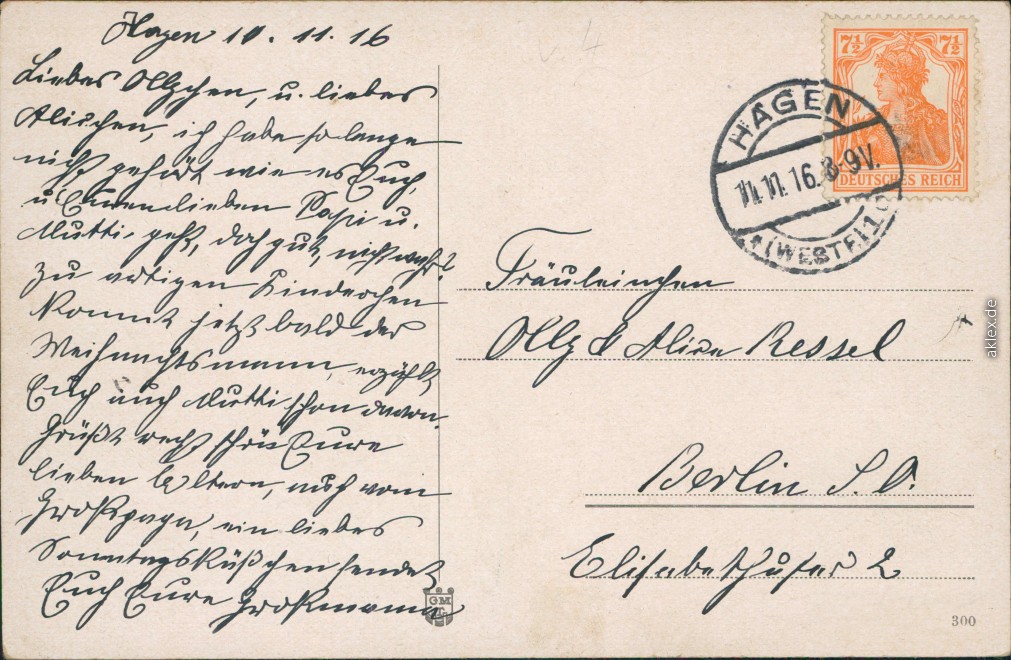 Hagen 10.11.16
Liebes Ollychen, u. liebes
Alischen, ich habe so lange
nicht gehört wie es Euch,
u. Euren lieben Papi u.
Mutti, geht, doch gut, nicht wahr?
Zu artigen Kinderchen
kommt jetzt bald der
Weihnachtsmann, erzählt
Euch auch Mutti schon davon.
Grüßt recht schön Eure
lieben Eltern, auch vom
Großpapa, ein liebes
Sonntagsküßchen sendet
Euch Eure Großmama
7½ 7½
DEUTSCHES REICH
HAGEN
11.11.16. 8-9V.
*(WESTF.)1
Fräuleinchen
Olly & Alice Ressel
Berlin S. O.
Elisabethufer 2
GM
300
aklex.de